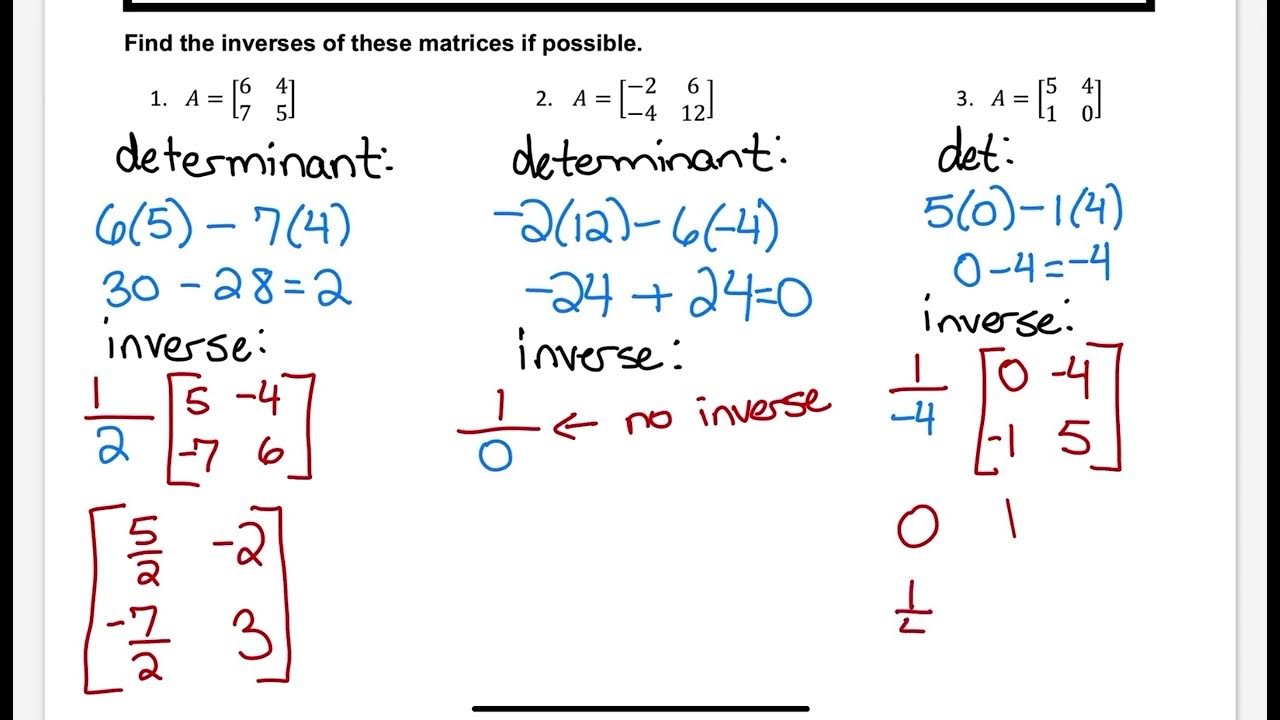 Find the inverses of these matrices if possible.
1. A = [6 4
7 5]
determinant:
6(5) - 7(4)
30 - 28 = 2
inverse:
1/2 [5 -4
-7 6]
[5/2 -2
-7/2 3]
2. A = [-2 6
-4 12]
determinant:
-2(12) - 6(-4)
-24 + 24 = 0
inverse:
1/0 ← no inverse
3. A = [5 4
1 0]
det:
5(0) - 1(4)
0 - 4 = -4
inverse:
1/-4 [0 -4
-1 5]
0 1
1/